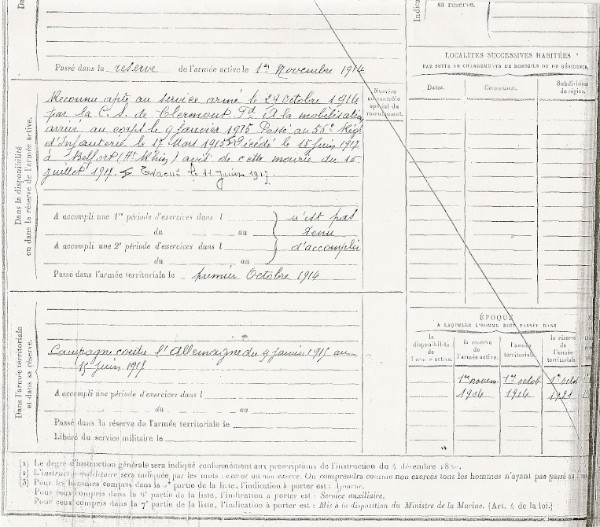 Dans la
Passé dans la réserve de l'armée active le 1er Novembre 1914
Dans la disponibilité
ou dans la réserve de l'armée active.
Reconnu apte au service armé le 29 Octobre 1914
par la C. S. de Clermont Fd. A la mobilisation
arrivé au corps le 9 Janvier 1915 Passé au 56e Régt
d'Infanterie le 17 Mars 1915 Décédé le 15 juin 1917
à Belfort (Ht Rhin) avis de cette mairie du 10
juillet 1917. le 11 Juin 1917
A accompli une 1re période d'exercices dans l
du au
A accompli une 2e période d'exercices dans l
du au
n'est pas
tenu
d'accomplir
Passé dans l'armée territoriale le premier Octobre 1914
Dans l'armée territoriale
et dans sa réserve.
Campagne contre l'Allemagne du 9 janvier 1915 au
15 juin 1917
A accompli une période d'exercices dans l
du au
Passé dans la réserve de l'armée territoriale le
Libéré du service militaire le
Numéro
au contrôle
spécial du
recrutement.
Indic
sa réserve.
LOCALITÉS SUCCESSIVES HABITÉES
PAR SUITE DE CHANGEMENTS DE DOMICILE OU DE RÉSIDENCE.
Dates. Communes. Subdivision
de région.
ÉPOQUE
À LAQUELLE L'HOMME DOIT PASSER DANS
la
disponibilité
de
l'armée active.
la réserve
de
l'armée active.
l'armée
territoriale.
la réserve
de
l'armée
territoriale.
1er novem 1er octob 1er octob
1904
1 Le degré d'instruction générale sera indiqué conformément aux prescriptions de l'instruction du 4 décembre
2 L'instruction militaire sera indiquée par les mots: exercé ou non exercé. On comprendra comme non exercés tous les hommes n'ayant pas passé au
3 Pour les hommes compris dans la partie de la liste, l'indication à porter est:
Pour ceux compris dans la partie de la liste, l'indication à porter est: Service auxiliaire.
Pour ceux compris dans la 7e partie de la liste, l'indication à porter est: Mis à la disposition du Ministre de la Marine. (Art. 4 de la loi.)